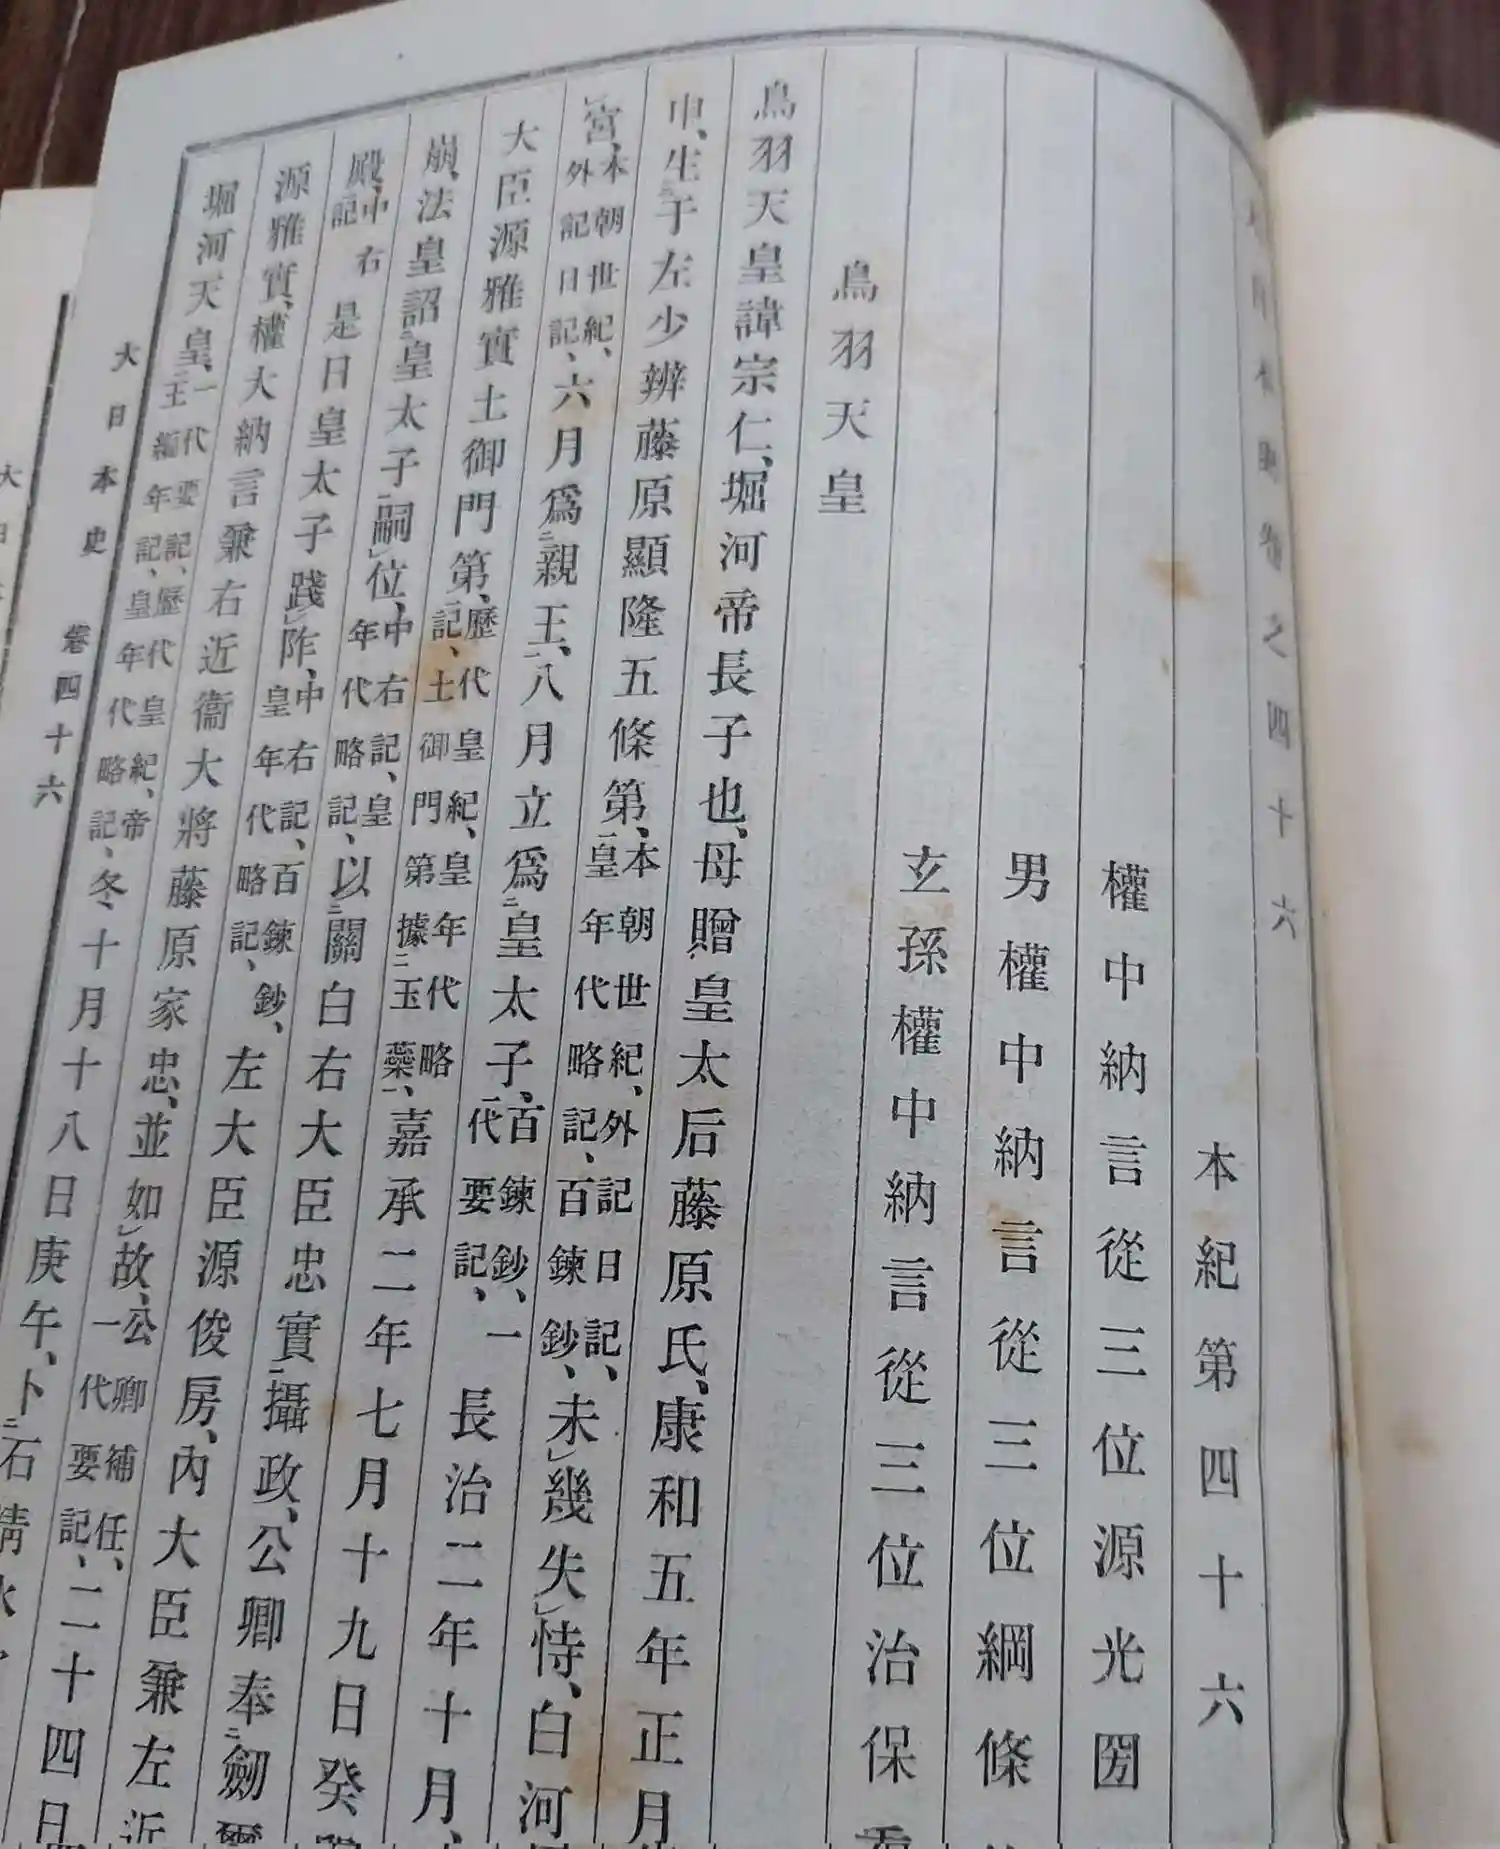 卷之四十六
本紀第四十六
權中納言從三位源光圀
男權中納言從三位綱條
玄孫權中納言從三位治保
鳥羽天皇
鳥羽天皇諱宗仁、堀河帝長子也、母贈皇太后藤原氏、康和五年正月
申、生于左少辨藤原顯隆五條第、本朝世紀、外記日記、皇年代略記、百鍊鈔、未幾失恃、白河
宮、本朝世紀、外記日記、六月爲親王、八月立爲皇太子、百鍊鈔、一代要記、長治二年十月、
大臣源雅實土御門第、歷代皇紀、皇年代略記、土御門第據玉蘂、嘉承二年七月十九日癸
崩、法皇詔皇太子嗣位、中右記、皇年代略記、以關白右大臣忠實攝政、公卿奉劒璽
殿、中右記 是日皇太子踐阼、中右記、百鍊鈔、皇年代略記、左大臣源俊房、內大臣兼左近
源雅實、權大納言兼右近衞大將藤原家忠、並如故、公卿補任、一代要記、二十四日
堀河天皇、一代要記、歷代皇紀、帝王編年記、皇年代略記、冬十月十八日庚午、卜石淸水
大日本史 卷四十六